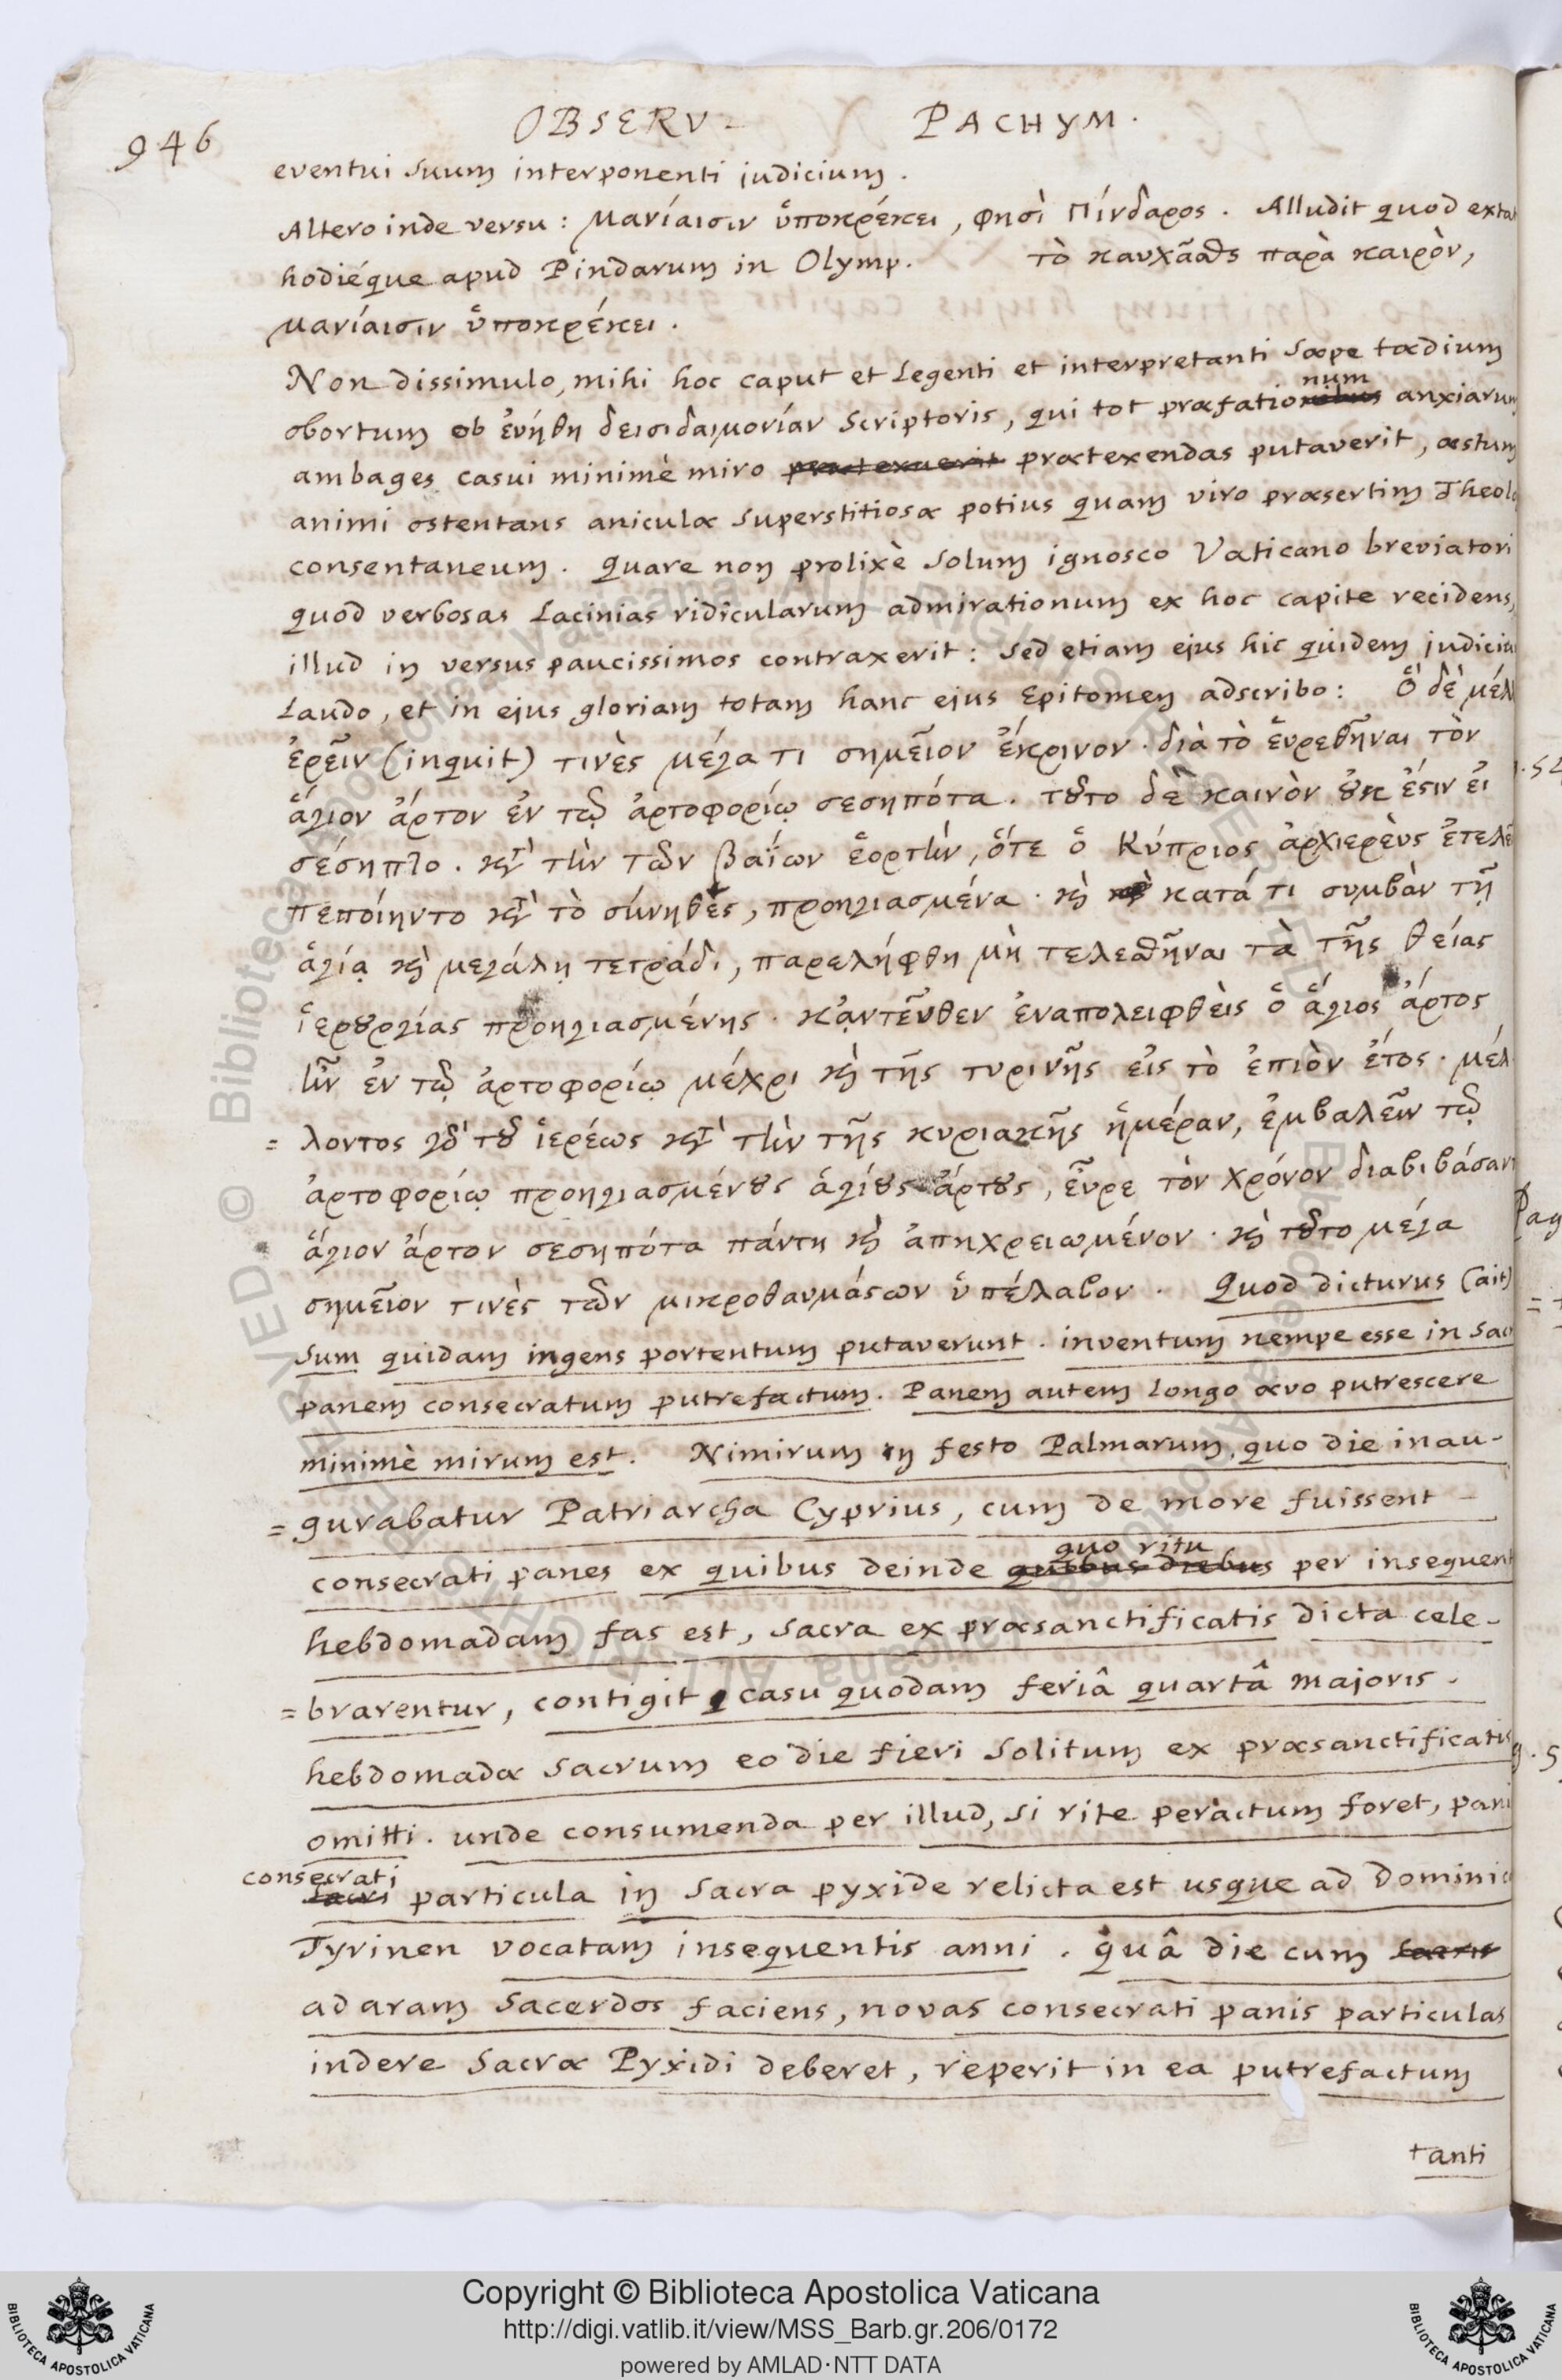 946
OBSERV- PACHYM.
eventui suum interponenti judicium.
Altero inde versu: Μανίαισιν ὑποκρέκει, φησὶ Πίνδαρος. Alludit quod extat
hodiéque apud Pindarum in Olymp. τὸ καυχᾶσθαι παρὰ καιρὸν,
μανίαισιν ὑποκρέκει.
Non dissimulo, mihi hoc caput et legenti et interpretanti sæpe tædium
num
obortum ob ἐυήθη δεισιδαιμονίαν scriptoris, qui tot præfationibus anxiarum
ambages casui minimè miro prætexuerit prætexendas putaverit, æstum
animi ostentans aniculæ superstitiosæ potius quam viro præsertim Theolo
consentaneum. Quare non prolixè solum ignosco Vaticano breviatori
quod verbosas lacinias ridicularum admirationum ex hoc capite recidens,
illud in versus paucissimos contraxerit: sed etiam ejus hic quidem judiciu
laudo, et in ejus gloriam totam hanc ejus Epitomen adscribo: Ὃ δὲ μέλ
ἐρεῖν (inquit) τινὲς μέγα τι σημεῖον ἔκρινον. διὰ τὸ εὑρεθῆναι τὸν
ἅγιον ἄρτον ἐν τῷ ἀρτοφορίῳ σεσηπότα. τȣ͂το δὲ καινὸν ȣ̓κ ἔϛιν ἐι
σέσηπτο. κτ̀ τὴν τῶν βαΐων ἑορτὴν, ὅτε ὁ Κύπριος ἀρχιερὲυς ἐτελεῖ
πεποίηντο κτ̀ τὸ σύνηθες, προηγιασμένα. ϗ̀ κατά τι συμβὰν τῇ
ἁγίᾳ ϗ̀ μεγάλῃ τετράδι, παρελήφθη μὴ τελεσθῆναι τὰ τῆς θείας
ἱερȣργίας προηγιασμένης. κᾀντεῦθεν ἐναπολειφθὲις ὁ ἅγιος ἄρτος
ἦν ἐν τῷ ἀρτοφορίῳ μέχρι ϗ̀ τῆς τυρινῆς εἰς τὸ ἐπιὸν ἔτος. μέλ
= λοντος γδ̀ τȣ͂ ἱερέως κτ̀ τὴν τῆς κυριακῆς ἡμέραν, ἐμβαλεῖν τῷ
ἀρτοφορίῳ προηγιασμένȣς ἁγίȣς ἄρτȣς, εὗρε τὸν χρόνον διαβιβάσαν
ἅγιον ἄρτον σεσηπότα πάντη ϗ̀ ἀπηχρειωμένον. ϗ̀ τȣ͂το μέγα
σημεῖον τινὲς τῶν μικροθαυμάϛων ὑπέλαβον. Quod dicturus (ait)
sum quidam ingens portentum putaverunt. inventum nempe esse in sac
panem consecratum putrefactum. Panem autem longo ævo putrescere
minimè mirum est. Nimirum in festo Palmarum, quo die inau-
= gurabatur Patriarcha Cyprius, cum de more fuissent -
quo ritu
consecrati panes ex quibus deinde quibus diebus per insequent
hebdomadam fas est, sacra ex præsanctificatis dicta cele-
= brarentur, contigit casu quodam feriâ quartâ majoris.
hebdomadæ sacrum eo die fieri solitum ex præsanctificatis
omitti. unde consumenda per illud, si rite peractum foret, pani
consecrati
sacri particula in sacra pyxide relicta est usque ad Dominic
Tyrinen vocatam insequentis anni. quâ die cum sacris
ad aram sacerdos faciens, novas consecrati panis particulas
indere sacræ Pyxidi deberet, reperit in ea putrefactum
tanti
Pag
Copyright © Biblioteca Apostolica Vaticana
http://digi.vatlib.it/view/MSS_Barb.gr.206/0172
powered by AMLAD·NTT DATA
BIBLIOTECA APOSTOLICA VATICANA
BIBLIOTECA APOSTOLICA VATICANA